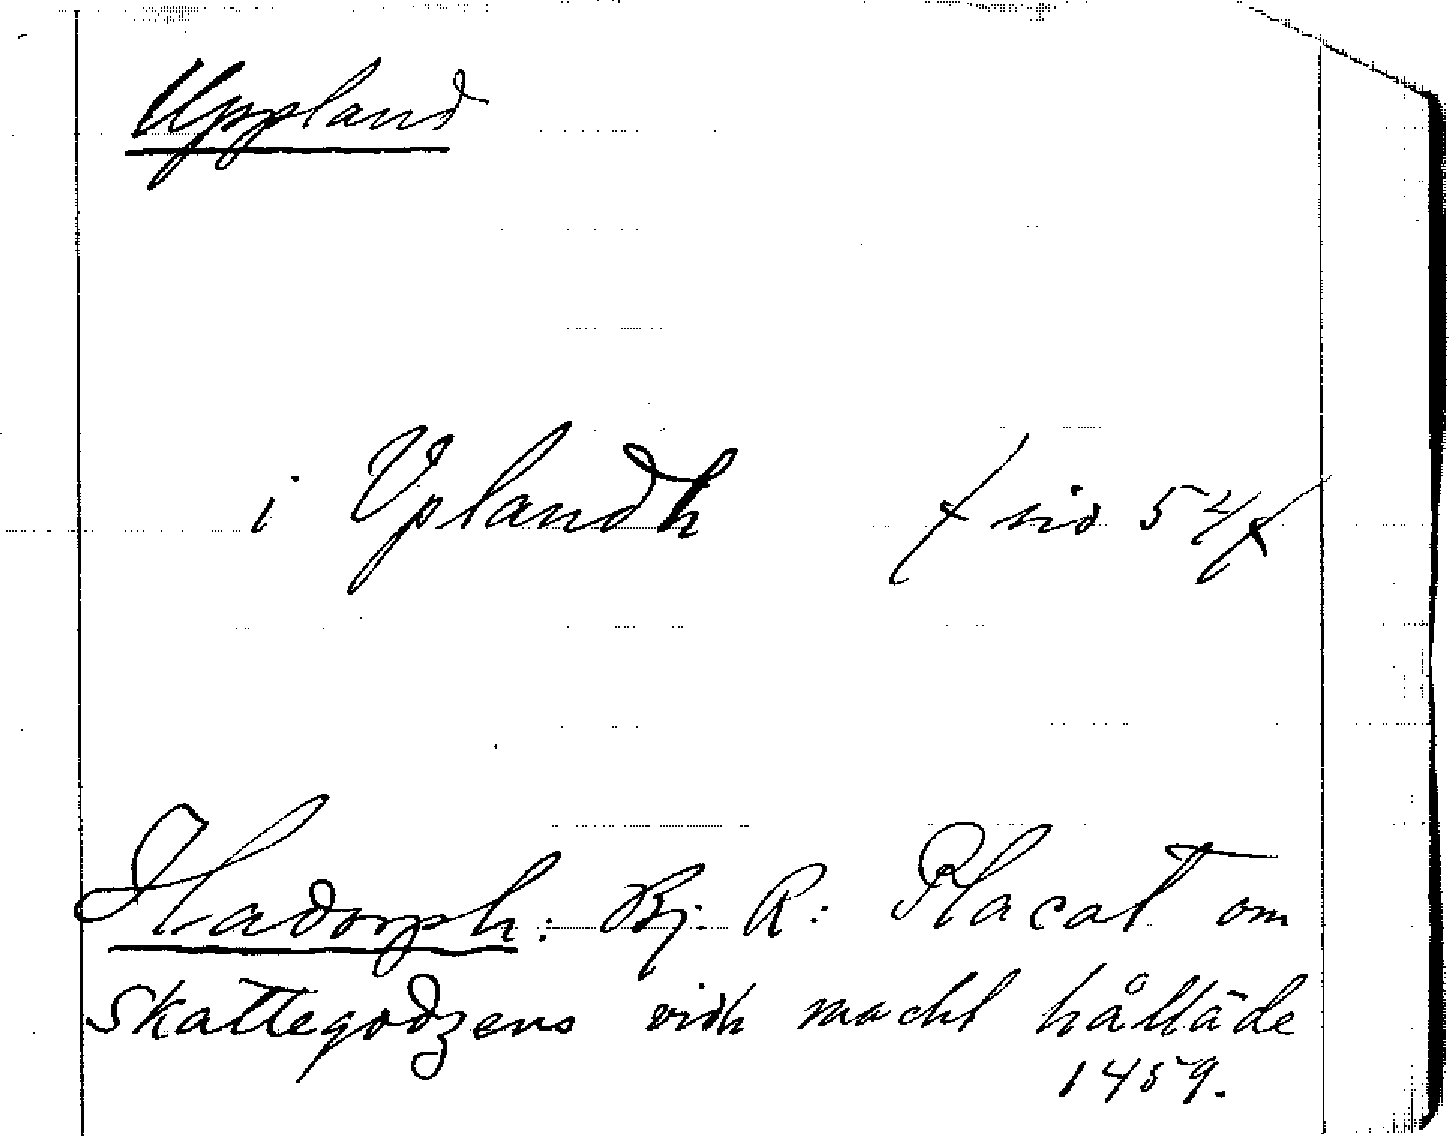 Uppland
i Uplandh f sid 54 f
Hadorph: Bj. R: Placat om
Skattegodzens vidh macht hållāde
1459.